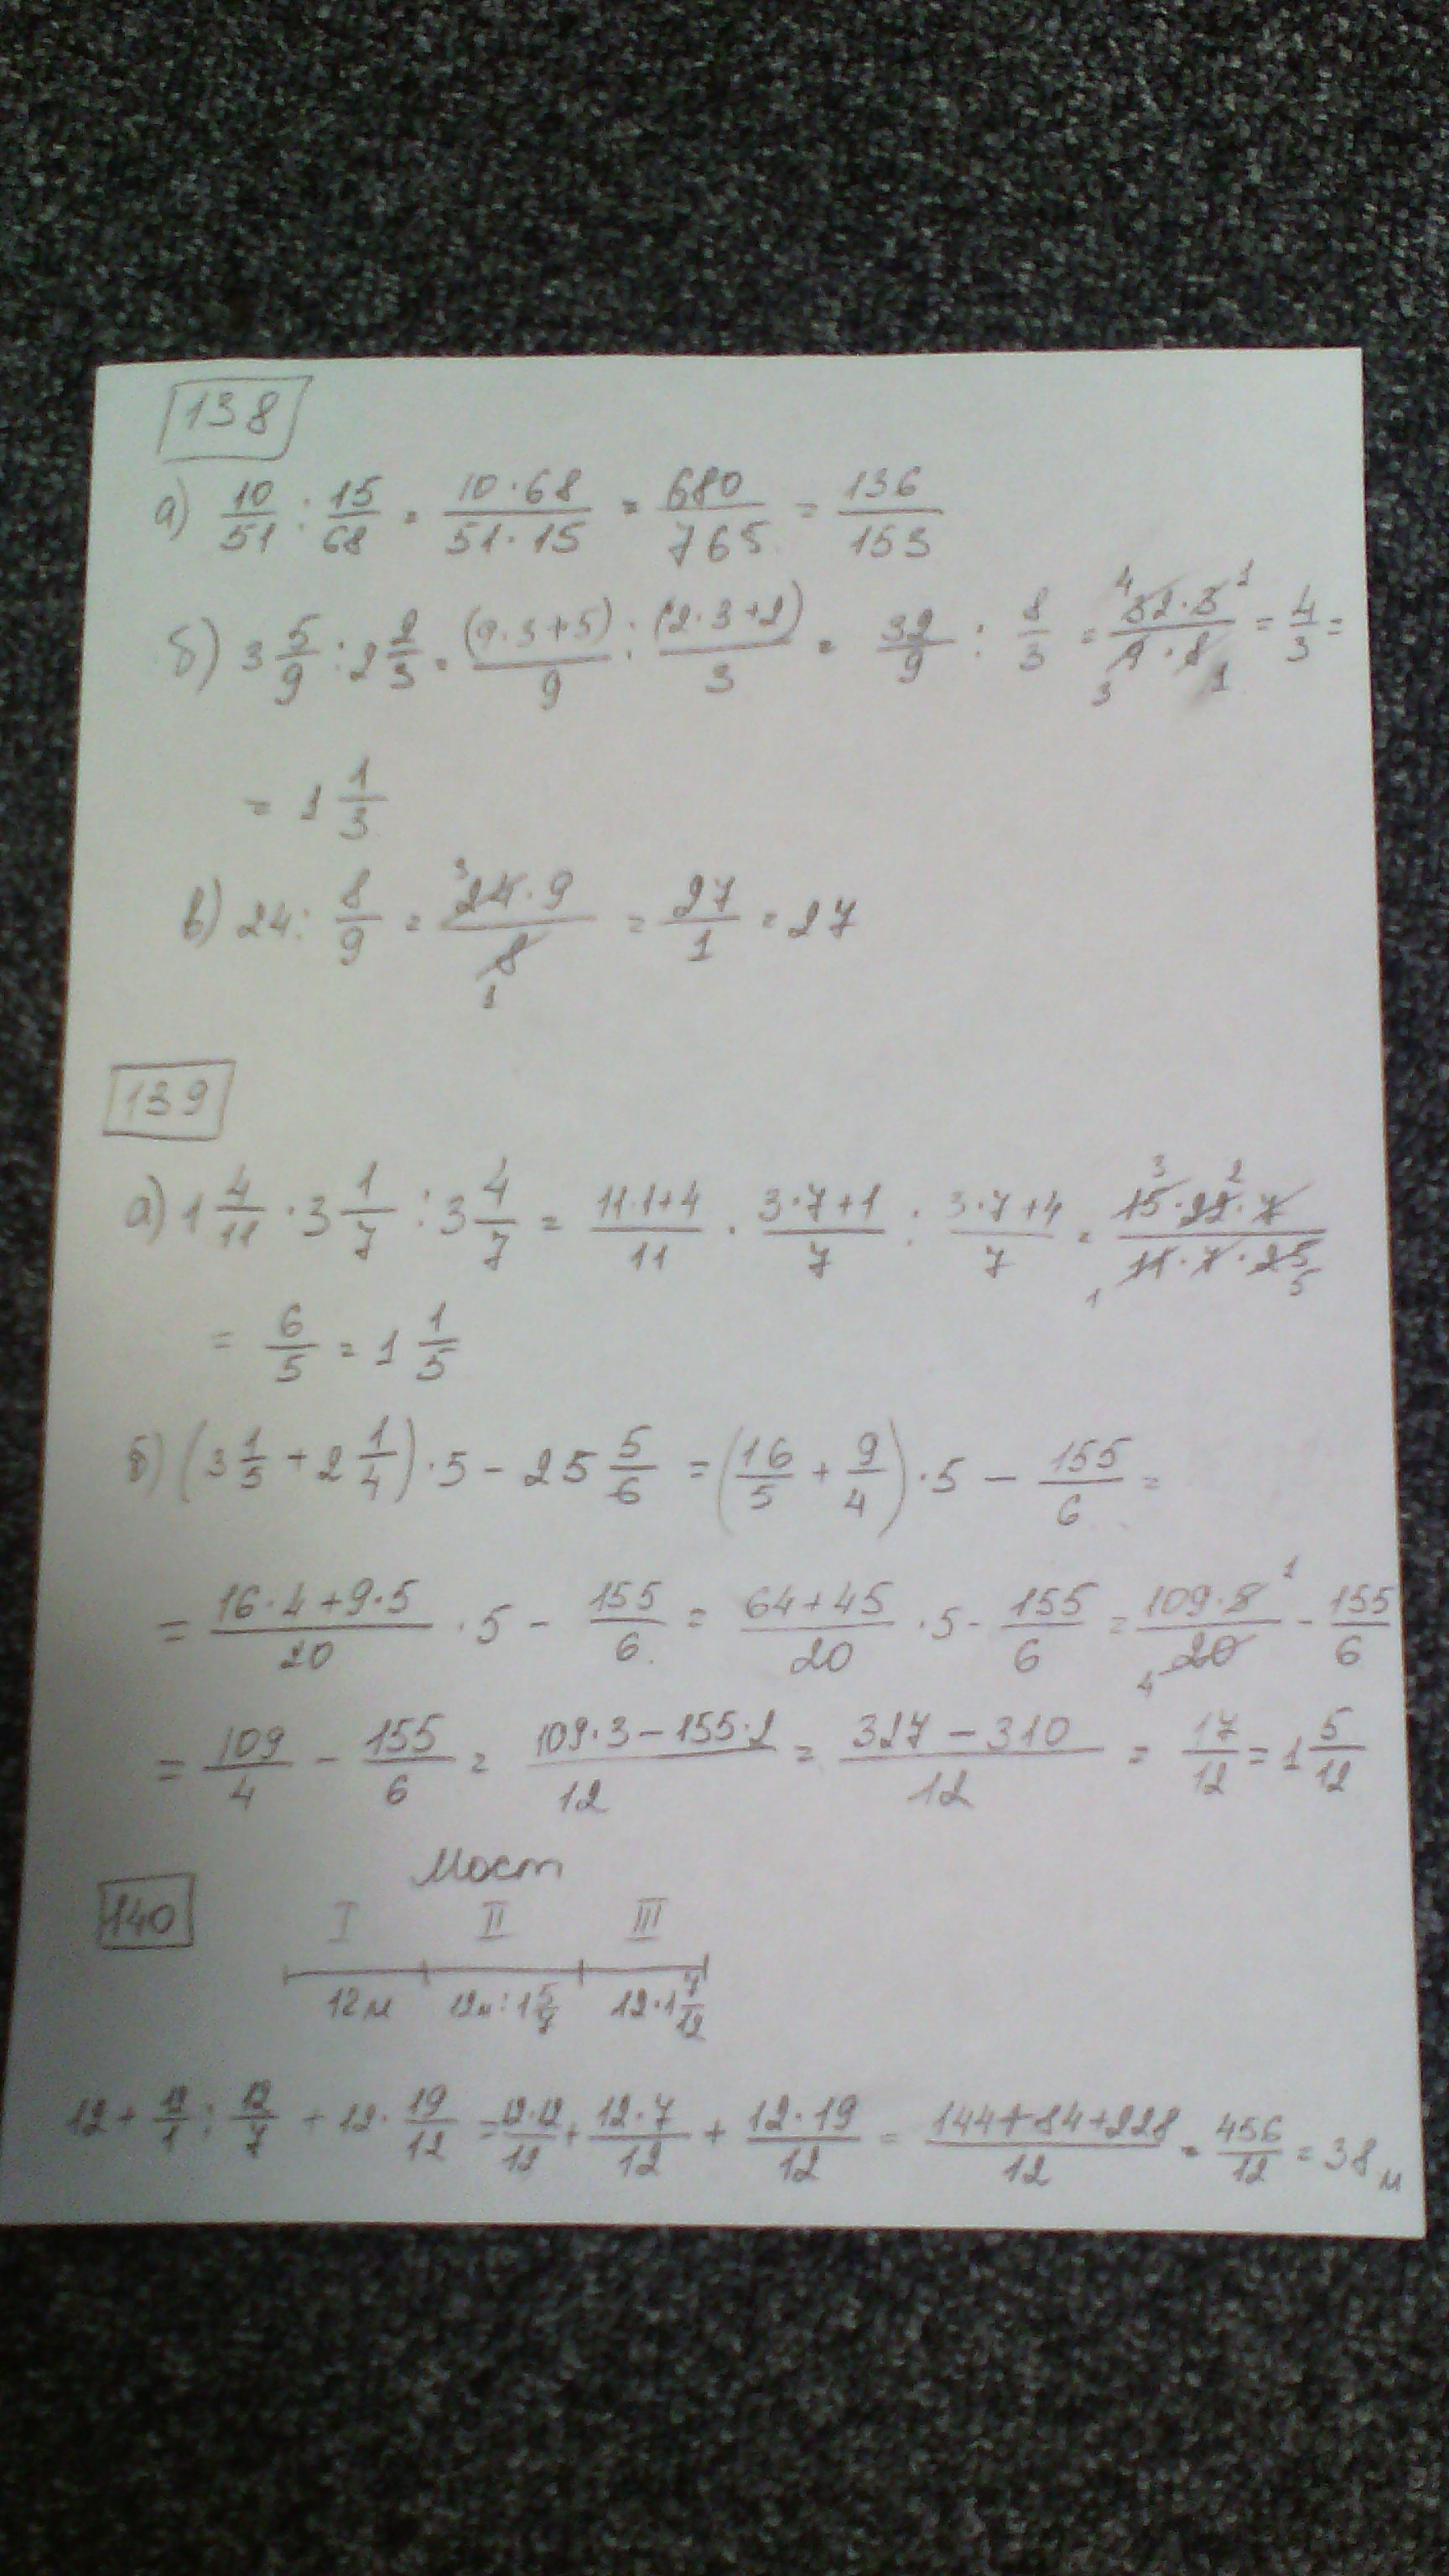 138
а) 10/51 : 15/68 = 10·68/51·15 = 680/765 = 136/153
б) 3 5/9 : 2 2/3 = (9·3+5)/9 : (2·3+2)/3 = 32/9 : 8/3 = 4 32·3 1/3 9·8 1 = 4/3 =
= 1 1/3
в) 24 : 8/9 = 3 24·9/8 1 = 27/1 = 27
139
а) 1 4/11 · 3 1/7 : 3 4/7 = 11·1+4/11 · 3·7+1/7 : 3·7+4/7 = 3 2 15·22·7/1 11·7·25 5
= 6/5 = 1 1/5
б) (3 1/5 + 2 1/4) · 5 - 25 5/6 = (16/5 + 9/4) · 5 - 155/6 =
= 16·4+9·5/20 · 5 - 155/6 = 64+45/20 · 5 - 155/6 = 109·5 1/4 20 - 155/6
= 109/4 - 155/6 = 109·3-155·2/12 = 327-310/12 = 17/12 = 1 5/12
Мост
140 I II III
12м 12м:1 5/7 12·1 7/12
12 + 12/1 : 12/7 + 12· 19/12 = 12·12/12 + 12·7/12 + 12·19/12 = 144+84+228/12 = 456/12 = 38 м